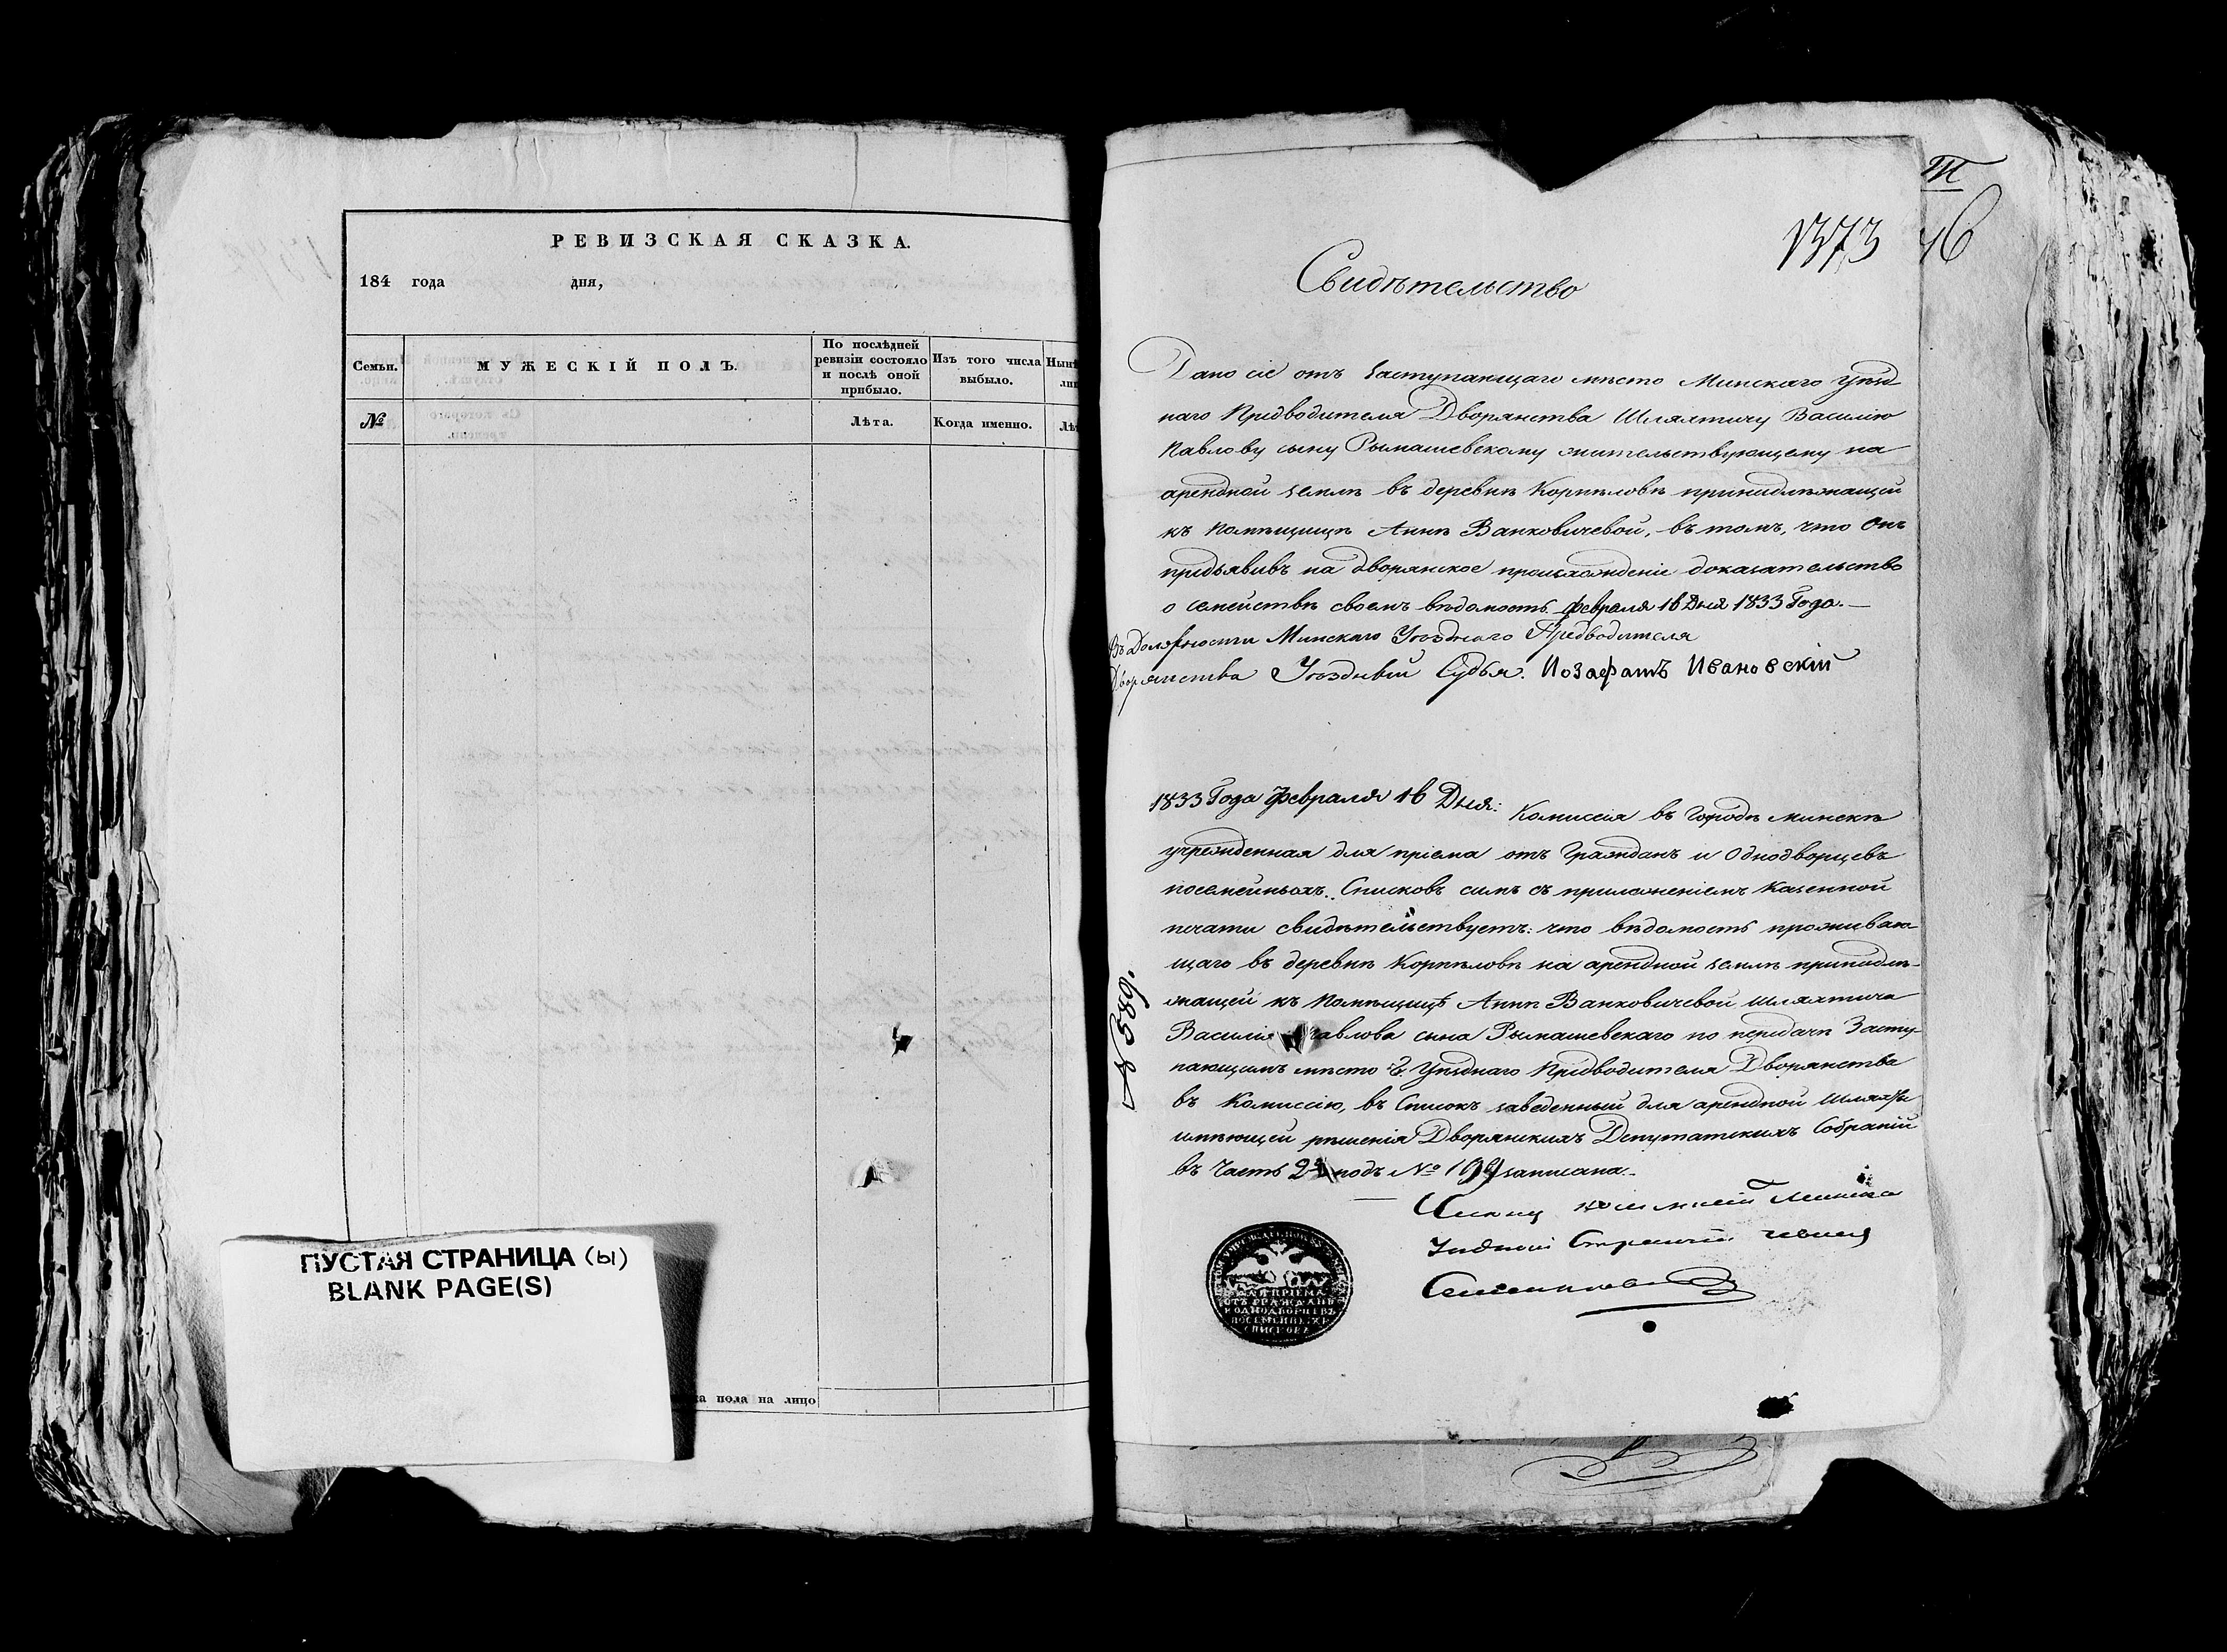 РЕВИЗСКАЯ СКАЗКА.
184 года дня,
Семьи.
МУЖЕСКІЙ ПОЛЪ.
По послѣдней
ревизіи состояло
и послѣ оной
прибыло.
Изъ того числа
выбыло.
№
Лѣта.
Когда именно.
ПУСТАЯ СТРАНИЦА (ы)
BLANK PAGE(S)
пола на лицо
III
1373 46
Свидѣтельство
Дано сіе отъ Заступающаго мѣсто Минскаго Уѣзд
наго Предводителя Дворянства Шляхтичу Василію
Павлову сыну Рымашевскому жительствующему на
арендной землѣ въ деревнѣ Корпѣловѣ принадлежащей
къ Помѣщицѣ Аннѣ Ваньковичевой, въ томъ, что Онъ
предъявивъ на дворянское происхожденіе доказательство
о семействѣ своемъ вѣдомость Февраля 16 Дня 1833 Года.—
Въ Должности Минскаго Уѣзднаго Предводителя
Дворянства Уѣздный Судья. Иозафатъ Ивановскій
1833 Года Февраля 16 Дня: Комиссія въ Городѣ Минскѣ
учрежденная для пріема отъ Гражданъ и Однодворцевъ
посемейныхъ Списковъ симъ съ приложеніемъ Казенной
печати свидѣтельствуетъ: что вѣдомость проживаю
щаго въ деревнѣ Корпѣловѣ на арендной землѣ принадле-
жащей къ Помѣщицѣ Аннѣ Ваньковичевой шляхтича
Василія Павлова сына Рымашевскаго по передачѣ Засту-
пающимъ мѣсто Г. Уѣзднаго Предводителя Дворянства
въ Комиссію, въ Списокъ заведенный для арендной Шляхты
имѣющей рѣшенія Дворянскихъ Депутатскихъ Собраній
въ Часть 2й подъ № 199 записана.
№ 589.
Уѣздный Стряпчій
ДЛЯ ПРІЕМА
ОТЪ ГРАЖДАНЪ
И ОДНОДВОРЦЕВЪ
ПОСЕМЕЙНЫХЪ
СПИСКОВЪ